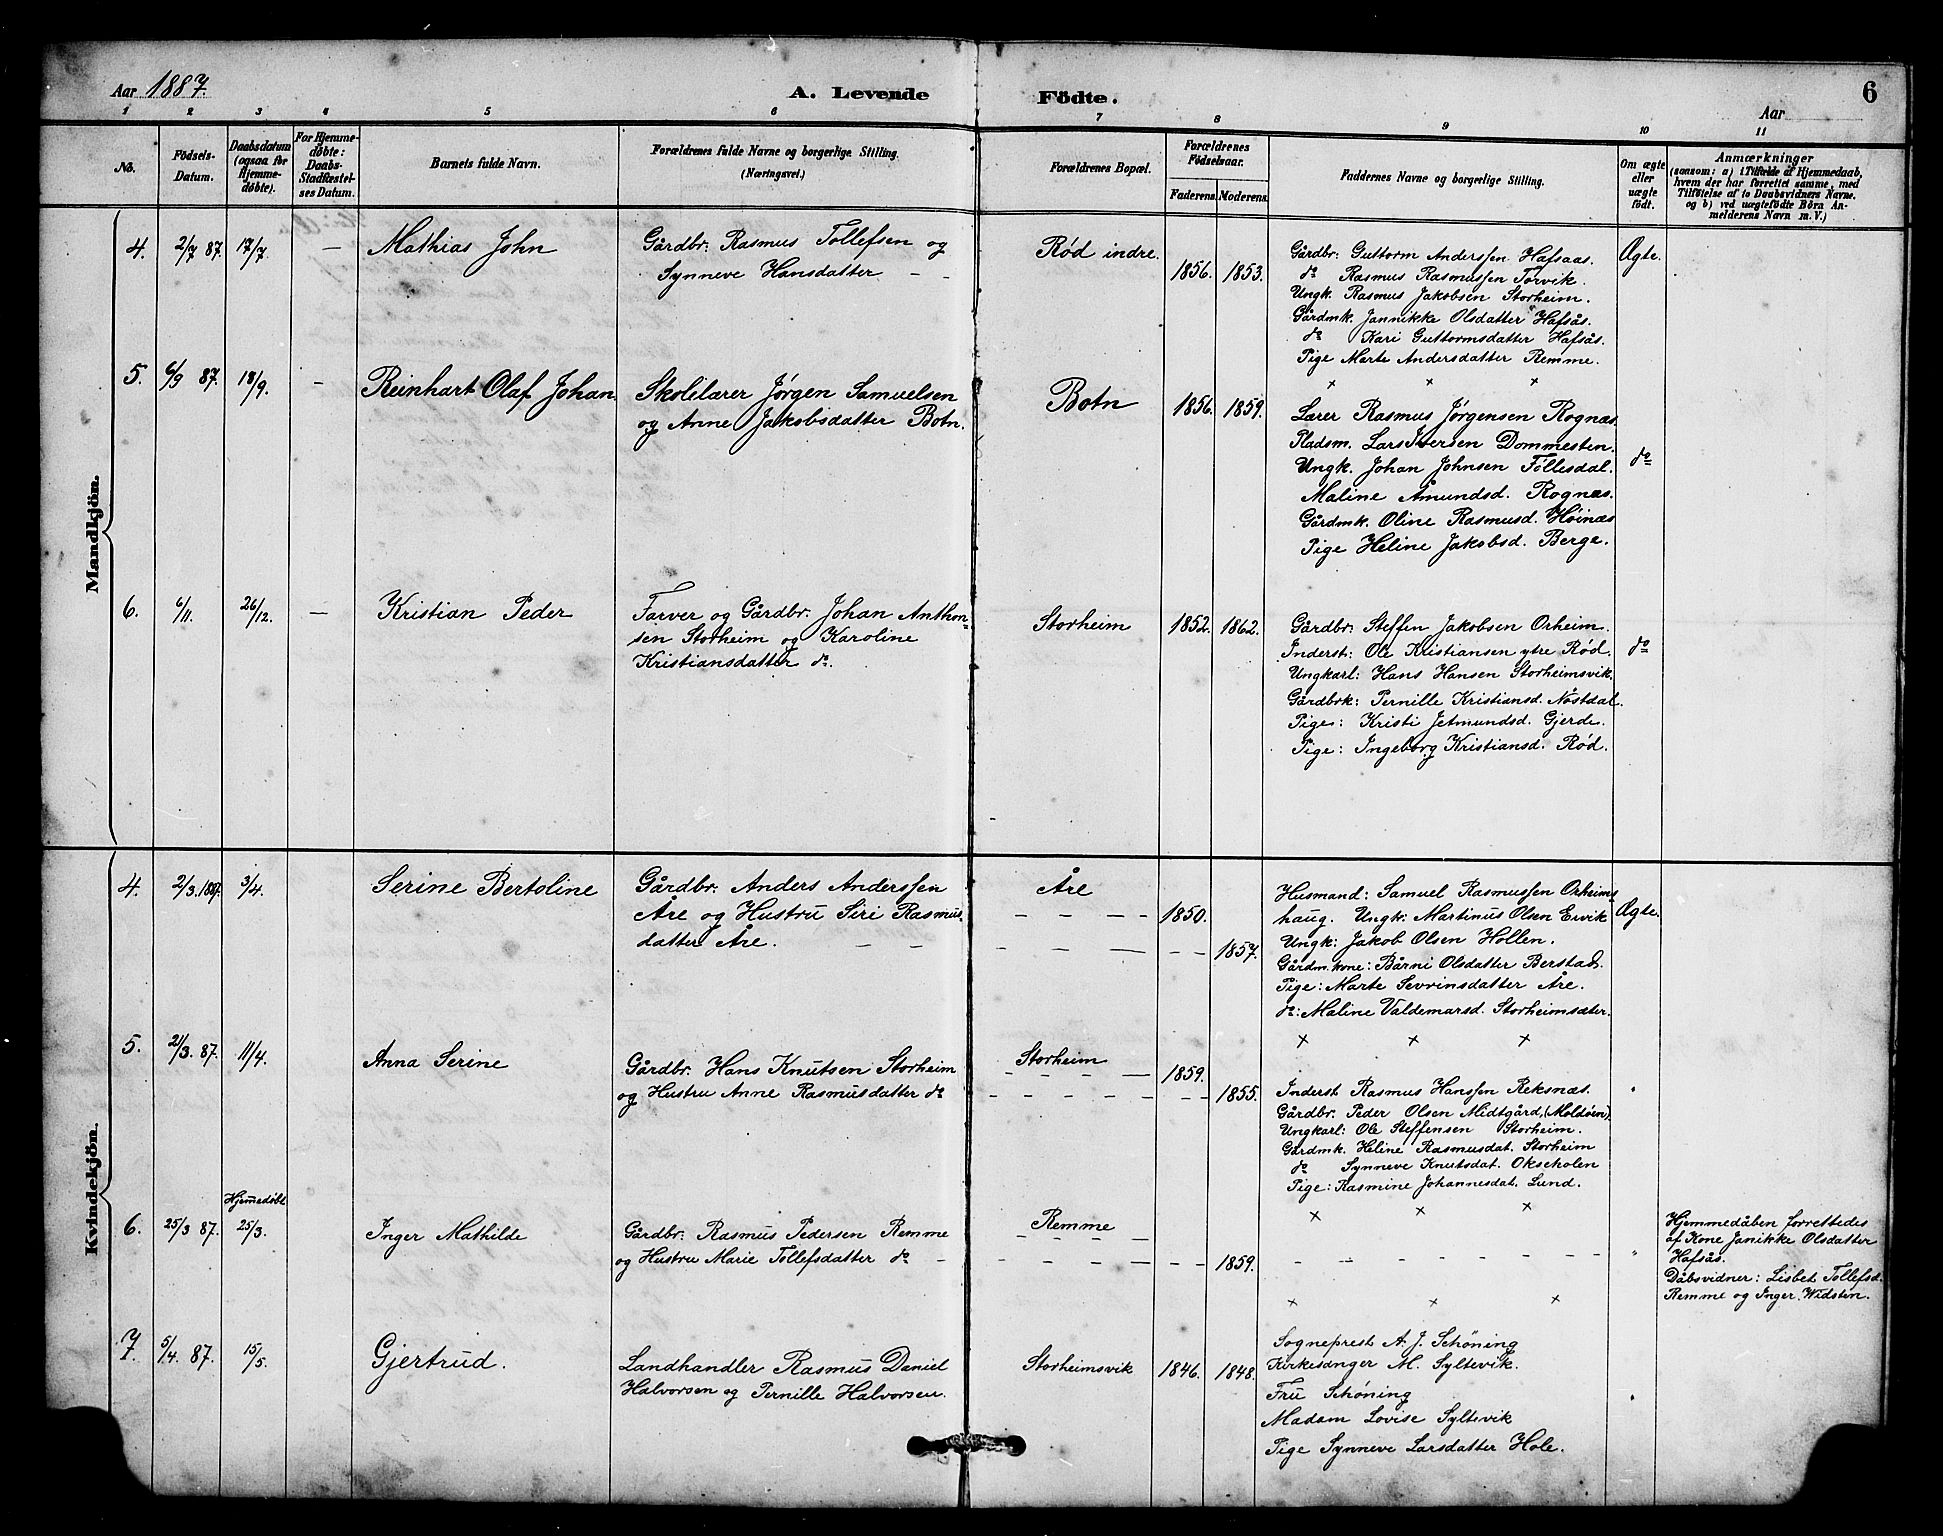 Aar 1887.
A. Levende Födte.
Aar
6
1 2 3 4 5 6 7 8 9 10 11
No.
Födsels-Datum.
Daabsdatum (ogsaa for Hjemme-döbte).
For Hjemme-döbte: Daabs-Stadfæstel-ses Datum.
Barnets fulde Navn.
Forældrenes fulde Navne og borgerlige Stilling.
(Næringsvei.)
Forældrenes Bopæl.
Forældrenes Födselsaar.
Faderens. Moderens.
Faddernes Navne og borgerlige Stilling.
Om ægte eller uægte födt.
Anmærkninger
(saasom: a) i Tilfælde af Hjemmedaab,
hvem der har forrettet samme, med
Tilföielse af to Daabsvidners Navne,
og b) ved uægtefödte Börn An-
melderens Navn m. V.)
Mandkjön.
4. 2/7 87. 17/7. — Mathias John
Gårdbr: Rasmus Tollefsen og
Synneve Hansdatter - -
Rød indre. 1856. 1853.
Gårdbr: Guttorm Anderssen Hafsaas.
do Rasmus Rasmussen Torvik.
Ungk. Rasmus Jakobsen Storheim.
Gårdmk. Jannikke Olsdatter Hafsås.
do Kari Guttormsdatter Hafsås.
Pige Marte Andersdatter Remme.
Ægte.
x x x
5. 6/9 87. 18/9. - Reinhart Olaf Johan
Skolelærer Jørgen Samuelsen
og Anne Jakobsdatter Botn.
Botn 1856. 1859.
Lærer Rasmus Jørgensen Rognæs.
Pladsm. Lars Iversen Dommesten.
Ungk. Johan Johnsen Tollesdal.
Maline Åmundsd. Rognæs.
Gårdmk. Oline Rasmusd. Høinæs
Pige Heline Jakobsd. Berge.
do
6. 6/11. 26/12. — Kristian Peder
Farver og Gårdbr. Johan Anthon-
sen Storheim og Karoline
Kristiansdatter do.
Storheim 1852. 1862.
Gårdbr: Steffen Jakobsen Orheim.
Inderst: Ole Kristiansen ytre Rød.
Ungkarl: Hans Hansen Storheimsvik.
Gårdbrk: Pernille Kristiansd. Nøstdal.
Pige: Kristi Jetmundsd. Gjerde.
Pige: Ingeborg Kristiansd. Rød.
do
Kvindekjön.
4. 2/3. 1887. 3/4. Serine Bertoline
Gårdbr: Anders Anderssen
Åre og Hustru Siri Rasmus-
datter Åre. - -
Åre
1850.
1857.
Husmand: Samuel Rasmussen Orheims-
haug. Ungk: Martinus Olsen Ervik
Ungk: Jakob Olsen Hollen.
Gårdm. kone: Bårni Olsdatter Berstad.
Pige: Marte Sevrinsdatter Åre.
do: Maline Valdemarsd. Storheimsæter.
Ægte.
x x x
5. 21/3. 87. 11/4. Anna Serine
Gårdbr. Hans Knutsen Storheim
og Hustru Anne Rasmusdatter do
Storheim
1859.
1855.
Inderst Rasmus Hanssen Reksnæs.
Gårdbr. Peder Olsen Midtgård, (Moldøen).
Ungkarl: Ole Steffensen Storheim.
Gårdmk. Heline Rasmusdat. Storheim
do Synneve Knutsdat. Okscholen
Pige: Rasmine Johannesdat. Lund.
x x x
Hjemmedøbt
6. 25/3 87. 25/3. Inger Mathilde
Gårdbr: Rasmus Pedersen Remme
og Hustru Marie Tollefsdatter do -
Remme
1859.
Hjemmedåben forrettedes
af Kone Janikke Olsdatter
Hafsås.
Dåbsvidner: Lisbet Tollefsd.
Remme og Inger Widstén.
x x x
7. 5/4. 87. 15/5. Gjertrud.
Landhandler Rasmus Daniel
Halvorsen og Pernille Halvorsen.
Storheimsvik 1846. 1848.
Sogneprest A. J. Schøning
Kirkesanger M. Syltevik.
Fru Schøning
Madam Lovise Syltevik
Pige Synneve Larsdatter Hole.